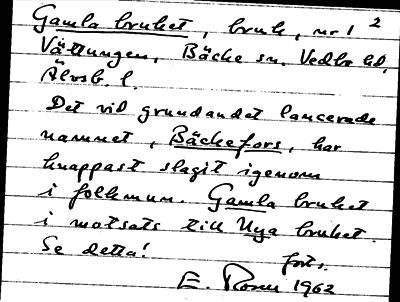 Gamla bruket, bruk, nr 1 2
Vättungen, Bäcke sn. Vedbo hd,
Älvsb. l.
Det vid grundandet lancerade
namnet, Bäckefors, har
knappast slagit igenom
i folkmun. Gamla bruket
i motsats till Nya bruket.
Se detta!
forts.
E. Rosen 1962